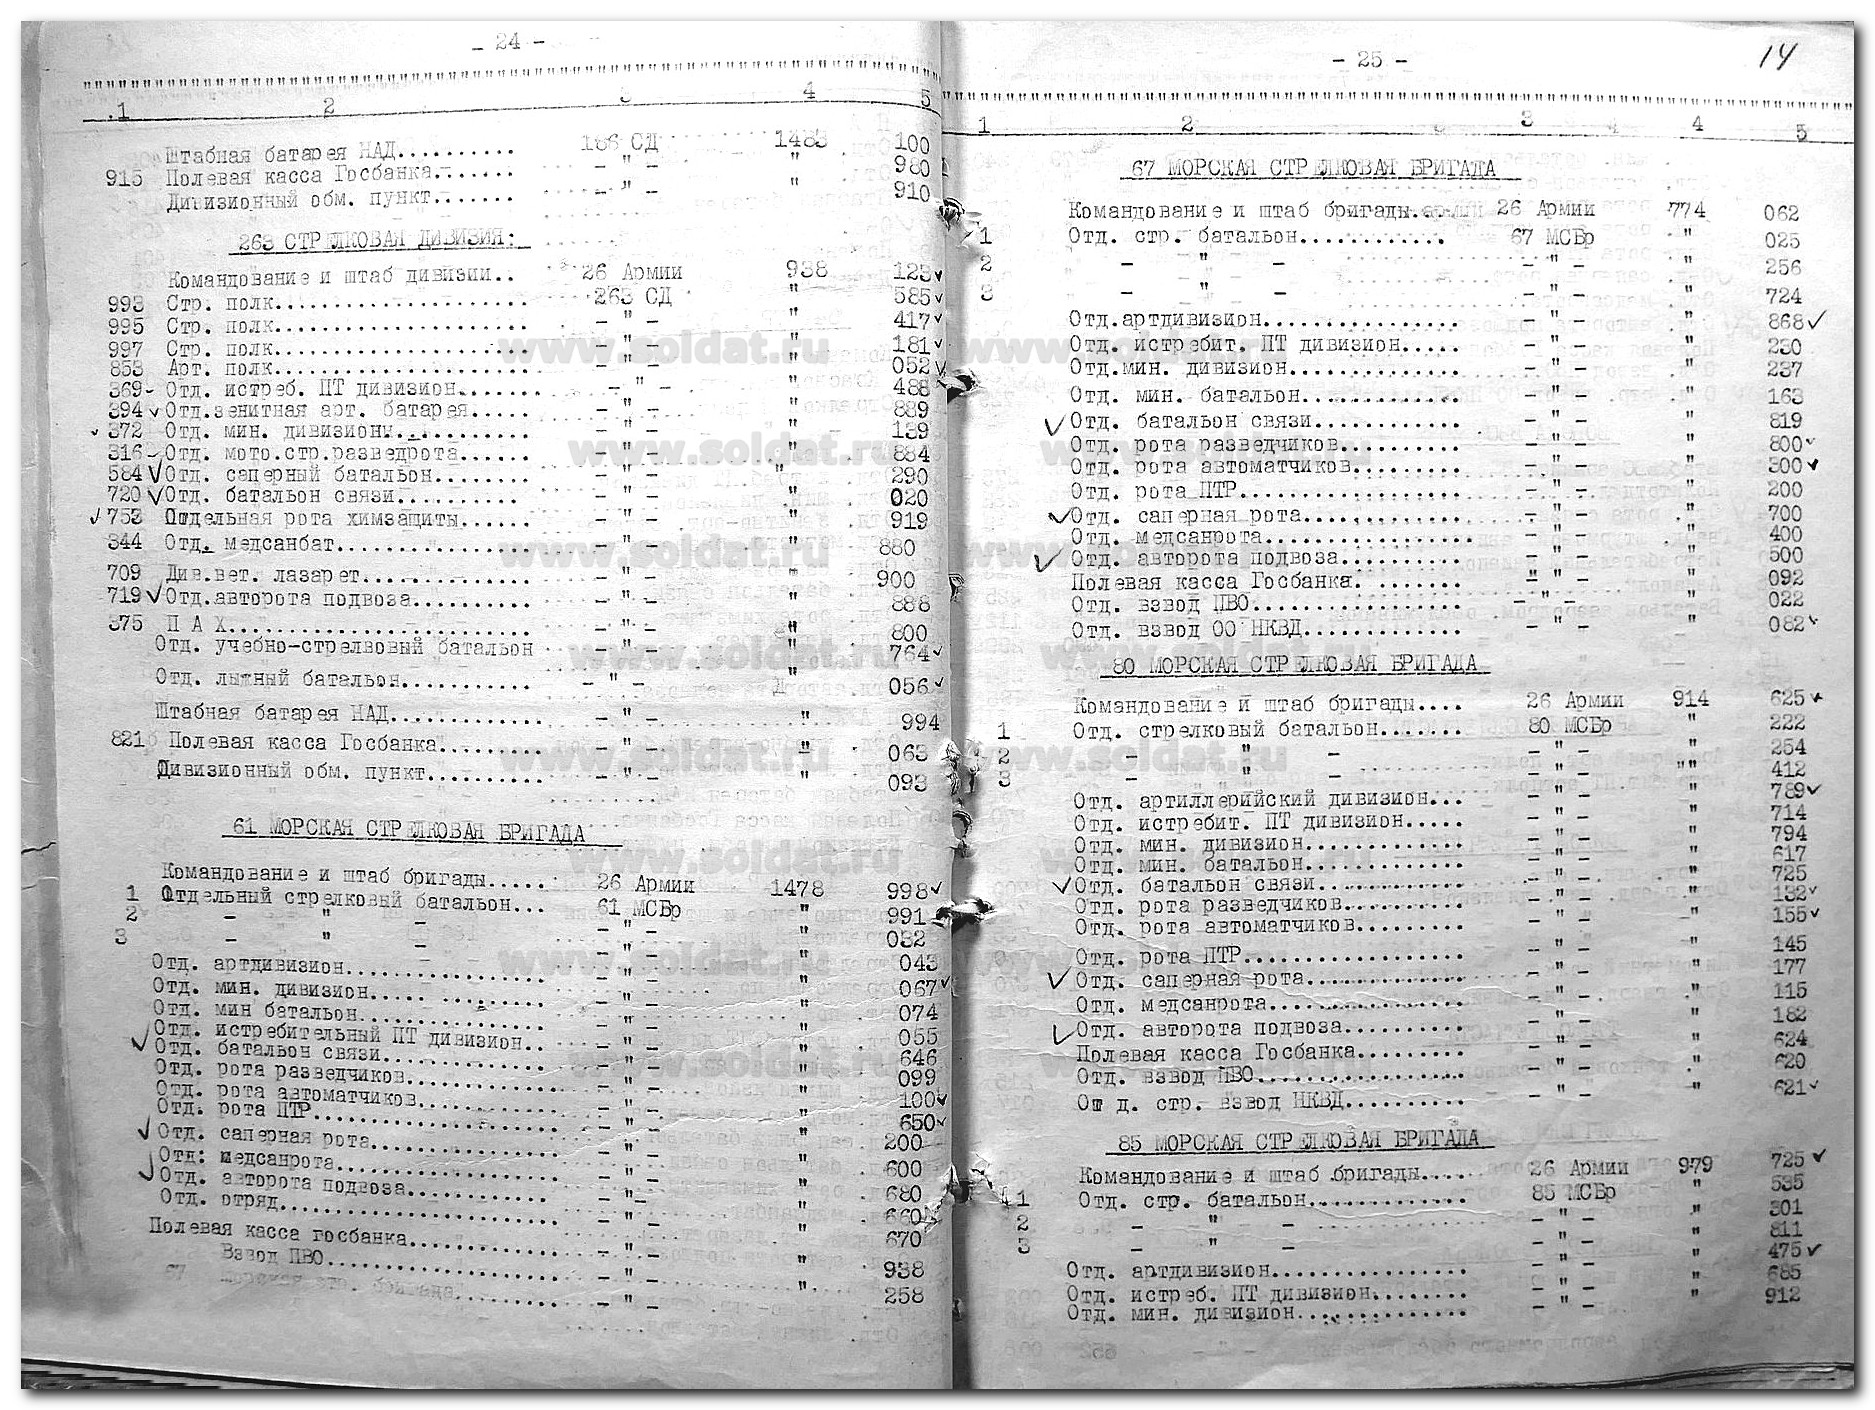 - 24 -
1 2 3 4 5
Штабная батарея НАД.......... 186 СД 1483 100
915 Полевая касса Госбанка....... - " - " 980
Дивизионный обм. пункт....... - " - " 910
263 СТРЕЛКОВАЯ ДИВИЗИЯ:
Командование и штаб дивизии.. 26 Армии 938 123
993 Стр. полк.................... 263 СД " 585
995 Стр. полк.................... - " - " 417
997 Стр. полк.................... - " - " 181
853 Арт. полк.................... - " - " 052
369 Отд. истреб. ПТ дивизион..... - " - " 488
394 Отд.зенитная арт. батарея...... - " - " 889
372 Отд. мин. дивизион........... - " - " 139
316 Отд. мото.стр.разведрота...... - " - " 884
584 Отд. саперный батальон........ - " - " 290
720 Отд. батальон связи........... - " - " 020
753 Отдельная рота химзащиты...... - " - " 919
344 Отд. медсанбат................ - " - " 880
709 Див.вет. лазарет.............. - " - " 900
719 Отд.авторота подвоза.......... - " - " 888
375 П А Х......................... - " - " 800
Отд. учебно-стрелковый батальон - " - " 764
Отд. лыжный батальон.......... - " - " 056
Штабная батарея НАД........... - " - " 994
821 Полевая касса Госбанка........ - " - " 063
Дивизионный обм. пункт........ - " - " 093
61 МОРСКАЯ СТРЕЛКОВАЯ БРИГАДА
Командование и штаб бригады..... 26 Армии 1478 998
1 Отдельный стрелковый батальон... 61 МСБр " 991
2 - " - - " - " 032
3 - " - - " - " 043
Отд. артдивизион................ - " - " 067
Отд. мин. дивизион.............. - " - " 074
Отд. мин батальон............... - " - " 055
Отд. истребительный ПТ дивизион.. - " - " 646
Отд. батальон связи............. - " - " 099
Отд. рота разведчиков........... - " - " 100
Отд. рота автоматчиков.......... - " - " 650
Отд. рота ПТР................... - " - " 200
Отд. саперная рота.............. - " - " 600
Отд: медсанрота................. - " - " 680
Отд. авторота подвоза........... - " - " 660
Отд. отряд...................... - " - " 670
Полевая касса госбанка.......... - " - " 938
Взвод ПВО....................... - " - " 258
14
- 25 -
1 2 3 4 5
67 МОРСКАЯ СТРЕЛКОВАЯ БРИГАДА
Командование и штаб бригады..... 26 Армии 774 062
1 Отд. стр. батальон............ 67 МСБр " 025
2 - " - - " - " 256
3 - " - - " - " 724
Отд.артдивизион................. - " - " 868
Отд. истребит. ПТ дивизион..... - " - " 230
Отд.мин. дивизион.............. - " - " 237
Отд. мин. батальон............. - " - " 163
Отд. батальон связи............ - " - " 819
Отд. рота разведчиков.......... - " - " 800
Отд. рота автоматчиков......... - " - " 300
Отд. рота ПТР.................. - " - " 200
Отд. саперная рота............. - " - " 700
Отд. медсанрота................ - " - " 400
Отд. авторота подвоза.......... - " - " 500
Полевая касса Госбанка......... - " - " 092
Отд. взвод ПВО................. - " - " 022
Отд. взвод ОО НКВД............. - " - " 082
80 МОРСКАЯ СТРЕЛКОВАЯ БРИГАДА
Командование и штаб бригады.... 26 Армии 914 625
1 Отд. стрелковый батальон....... 80 МСБр " 222
2 - " - - " - " 254
3 - " - - " - "" 412
Отд. артиллерийский дивизион... - " - " 789
Отд. истребит. ПТ дивизион..... - " - " 714
Отд. мин. дивизион............. - " - " 794
Отд. мин. батальон............. - " - " 617
Отд. батальон связи............ - " - " 725
Отд. рота разведчиков.......... - " - " 132
Отд. рота автоматчиков......... - " - " 155
Отд. рота ПТР.................. - " - " 145
Отд. саперная рота............. - " - " 177
Отд. медсанрота................ - " - " 115
Отд. авторота подвоза.......... - " - " 182
Полевая касса Госбанка......... - " - " 624
Отд. взвод ПВО................. - " - " 620
Отд. стр. взвод НКВД........... - " - " 621
85 МОРСКАЯ СТРЕЛКОВАЯ БРИГАДА
Командование и штаб бригады..... 26 Армии 979 725
1 Отд. стр. батальон............. 85 МСБр " 535
2 - " - - " - " 301
3 - " - - " - " 811
Отд. артдивизион............... - " - " 475
Отд. истреб. ПТ дивизион....... - " - " 685
Отд. мин. дивизион............. - " - " 912
www.soldat.ru